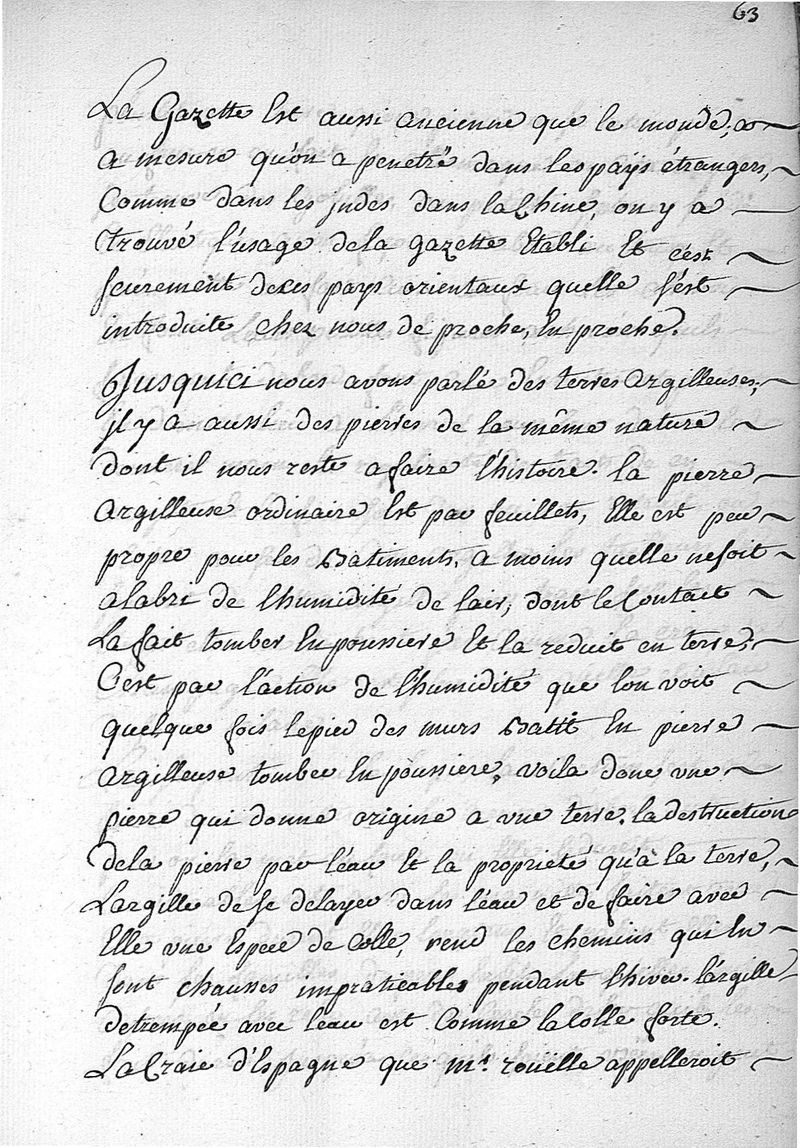 63
La Gazette Est aussi ancienne que le monde; a
a mesure qu'on a penetré dans les pays étrangers,
Comme dans les jndes dans la Chine, on y a
trouvé l'usage de la gazette Etabli Et c'est
seurement de ces pays orientaux quelle s'est
introduite chez nous de proche, En proche.
Jusquici nous avons parlé des terres argilleuses;
jl y a aussi des pierres de la même nature
dont il nous reste a faire l'histoire. la pierre
argilleuse ordinaire Est par feuillets, Elle est peu
propre pour les Batiments, a moins quelle ne soit
a labri de l'humidité de lair, dont le Contact
La fait tomber En poussiere Et la reduit en terre;
C'est par l'action de l'humidité que lon voit
quelque fois le pied des murs Batti En pierre
argilleuse tombee En poussiere, voila donc vne
pierre qui donne origine a vne terre. la destruction
de la pierre par l'éau Et la proprieté qu'à la terre,
L'argille de se delayer dans l'éau et de faire avec
Elle vne Espece de Colle, rend les chemins qui En
sont chausses impraticables pendant l'hiver. l'argille
detrempée avec leau est Comme la Colle forte.
La Craie d'Espagne que mr. roüelle appelleroit